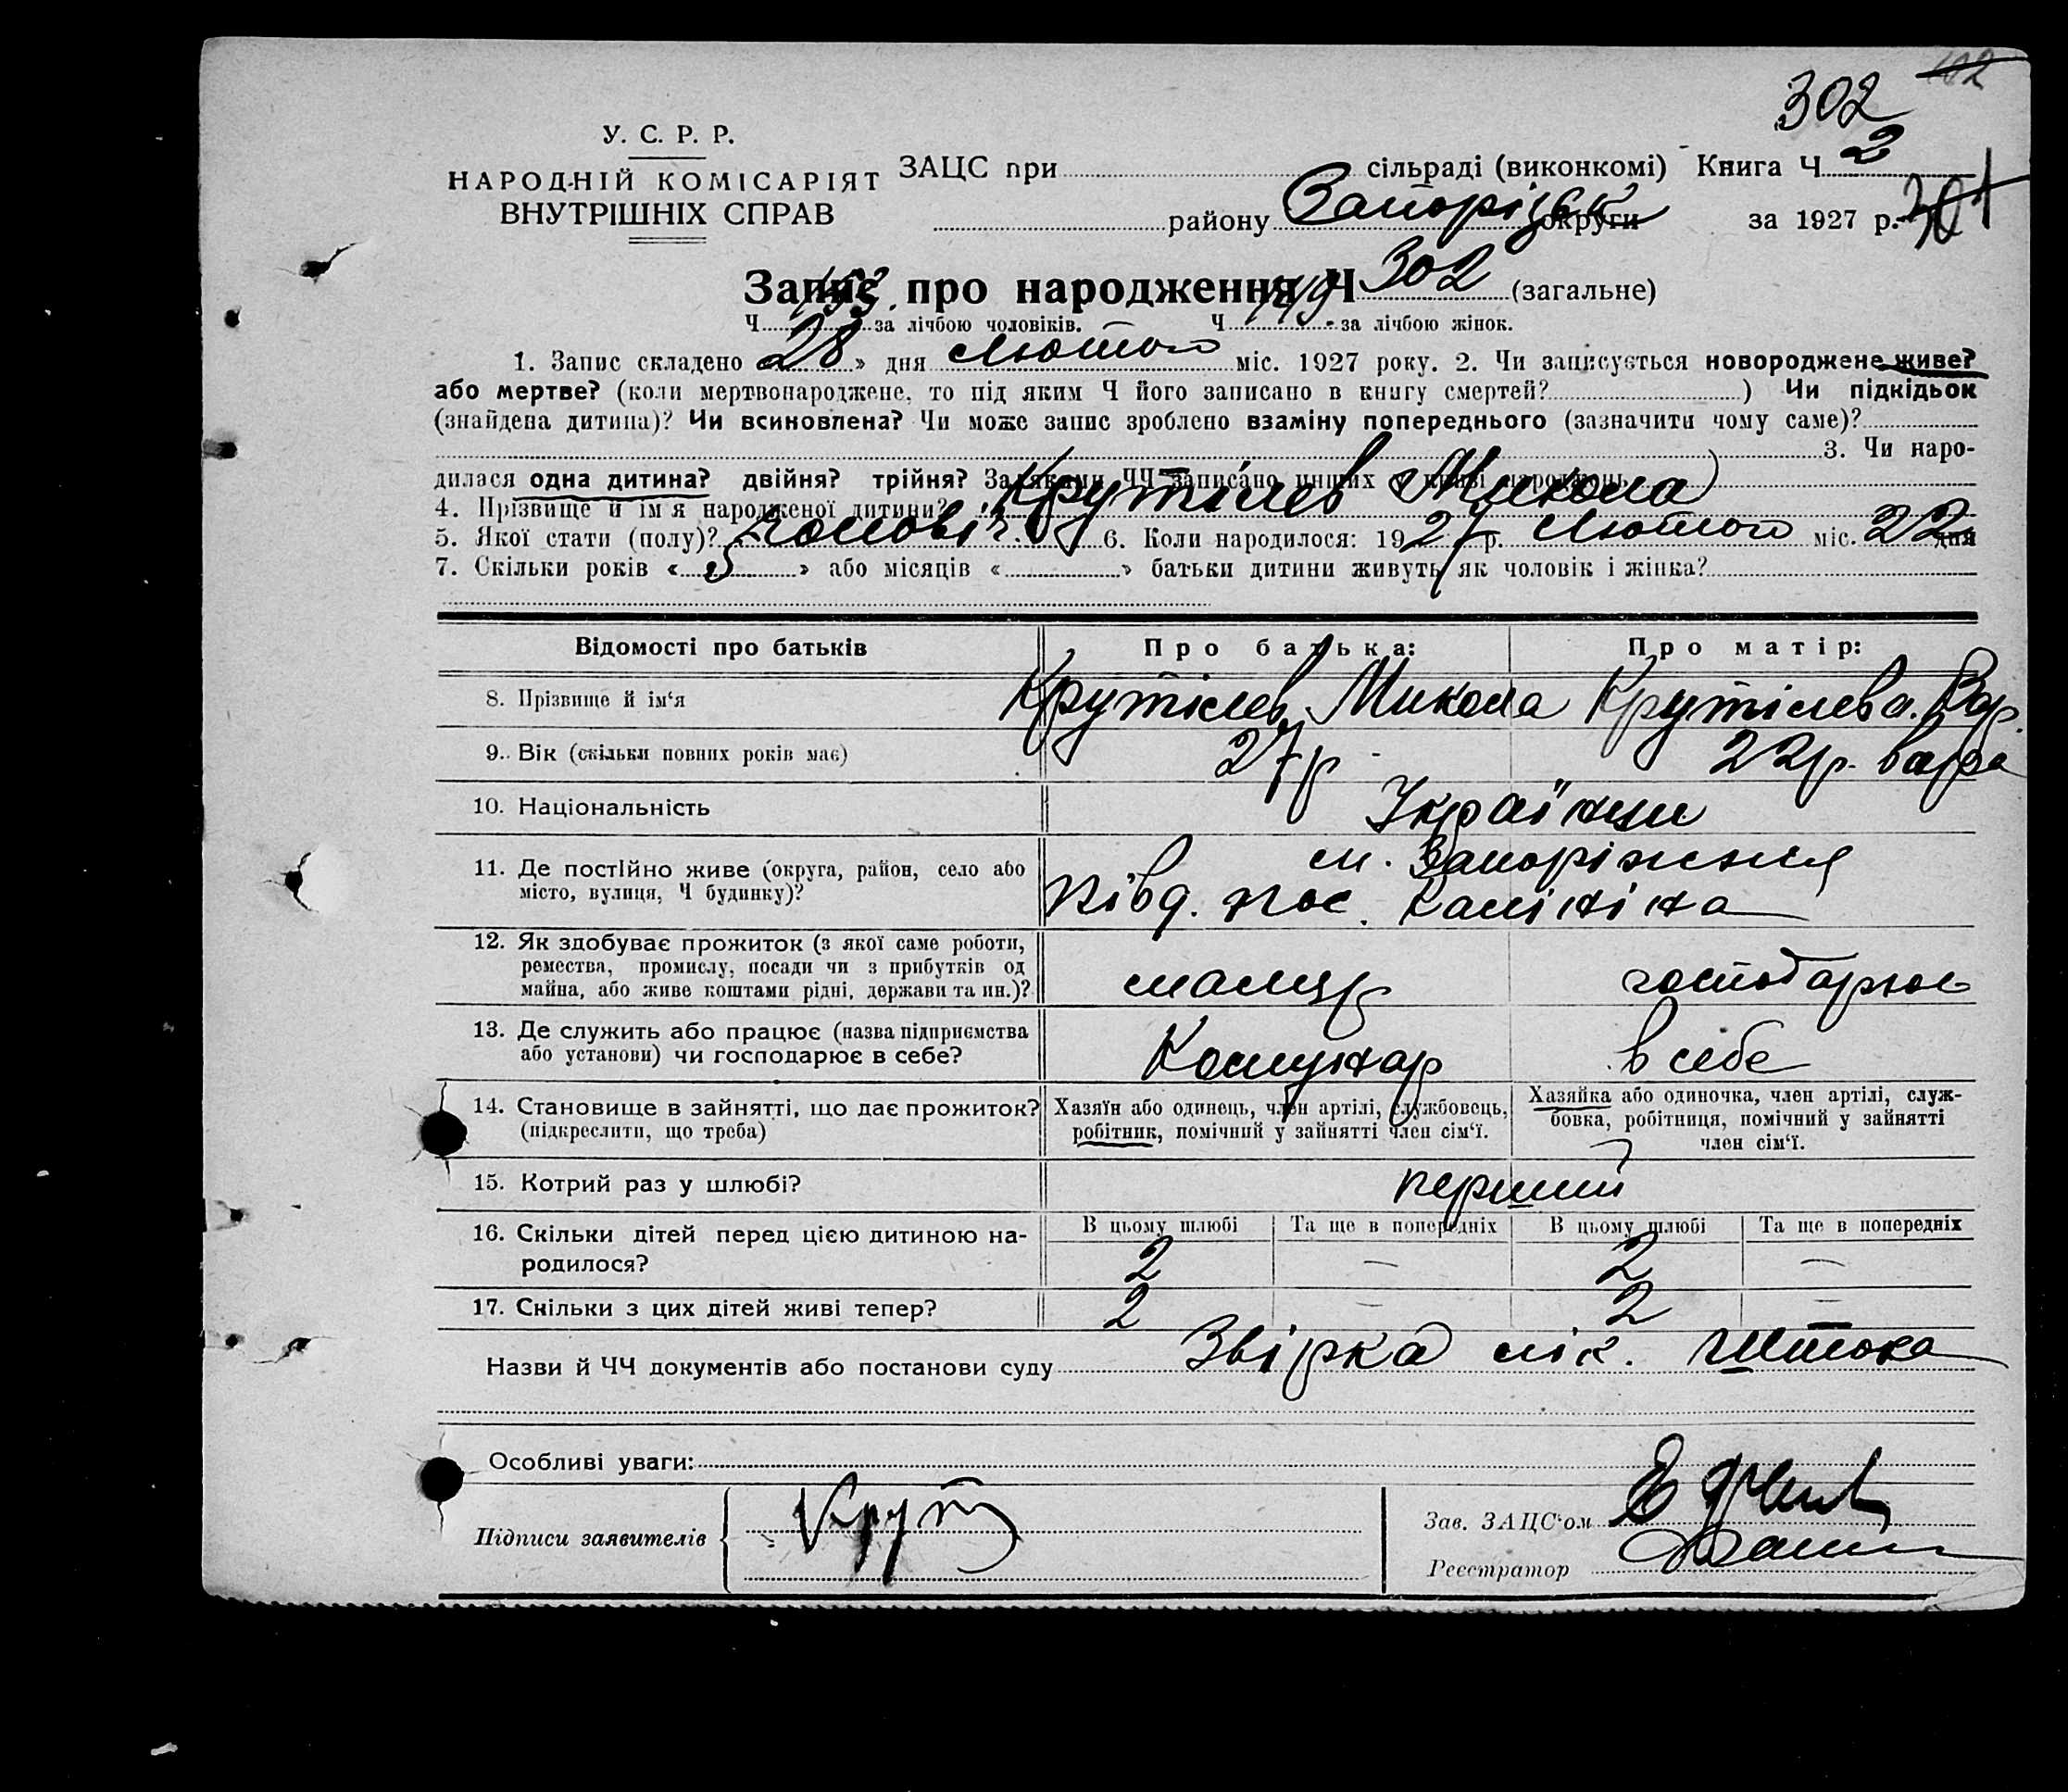 302
У. С. Р. Р.
НАРОДНІЙ КОМІСАРІЯТ
ВНУТРІШНІХ СПРАВ
ЗАЦС при сільраді (виконкомі) Книга Ч 2
району Запорізьк округи за 1927 р. 301
Запис про народження Ч 302 (загальне)
Ч 153. за лічбою чоловіків. Ч 149 за лічбою жінок.
1. Запис складено 28 » дня Лютого міс. 1927 року. 2. Чи записується новороджене живе?
або мертве? (коли мертвонароджене, то під яким Ч його записано в книгу смертей? ) Чи підкідьок
(знайдена дитина)? Чи всиновлена? Чи може запис зроблено взаміну попереднього (зазначити чому саме)?
) 3. Чи наро-
дилася одна дитина? двійня? трійня? За якими ЧЧ записано инших у книзі народжень
4. Прізвище й ім'я народженої дитини? Крутілев Микола
5. Якої стати (полу)? чоловіч. 6. Коли народилося: 1927 р. Лютого міс. 22 дня
7. Скільки років « » або місяців « » батьки дитини живуть як чоловік і жінка?
Відомості про батьків Про батька: Про матір:
8. Прізвище й ім'я Крутілев Микола Крутілева Вар
9. Вік (скільки повних років має) 27 р 22 р. вара
10. Національність Українци
11. Де постійно живе (округа, район, село або місто, вулиця, Ч будинку)? м. Запоріжжя
Півд. пос. Калініна
12. Як здобуває прожиток (з якої саме роботи,
ремества, промислу, посади чи з прибутків од
майна, або живе коштами рідні, держави та ин.)? маляр господарює
13. Де служить або працює (назва підприємства
або установи) чи господарює в себе? Комунар в себе
14. Становище в зайнятті, що дає прожиток?
(підкреслити, що треба)
Хазяїн або одинець, член артілі, службовець,
робітник, помічний у зайнятті член сім'ї.
Хазяйка або одиночка, член артілі, служ-
бовка, робітниця, помічний у зайнятті
член сім'ї.
15. Котрий раз у шлюбі? перший
16. Скільки дітей перед цією дитиною на-
родилося?
В цьому шлюбі Та ще в попередніх В цьому шлюбі Та ще в попередніх
2 — 2 —
17. Скільки з цих дітей живі тепер? 2 — 2 —
Назви й ЧЧ документів або постанови суду Звірка лік. Штока
Особливі уваги:
Підписи заявителів Крут
Зав. ЗАЦС'ом
Реєстратор